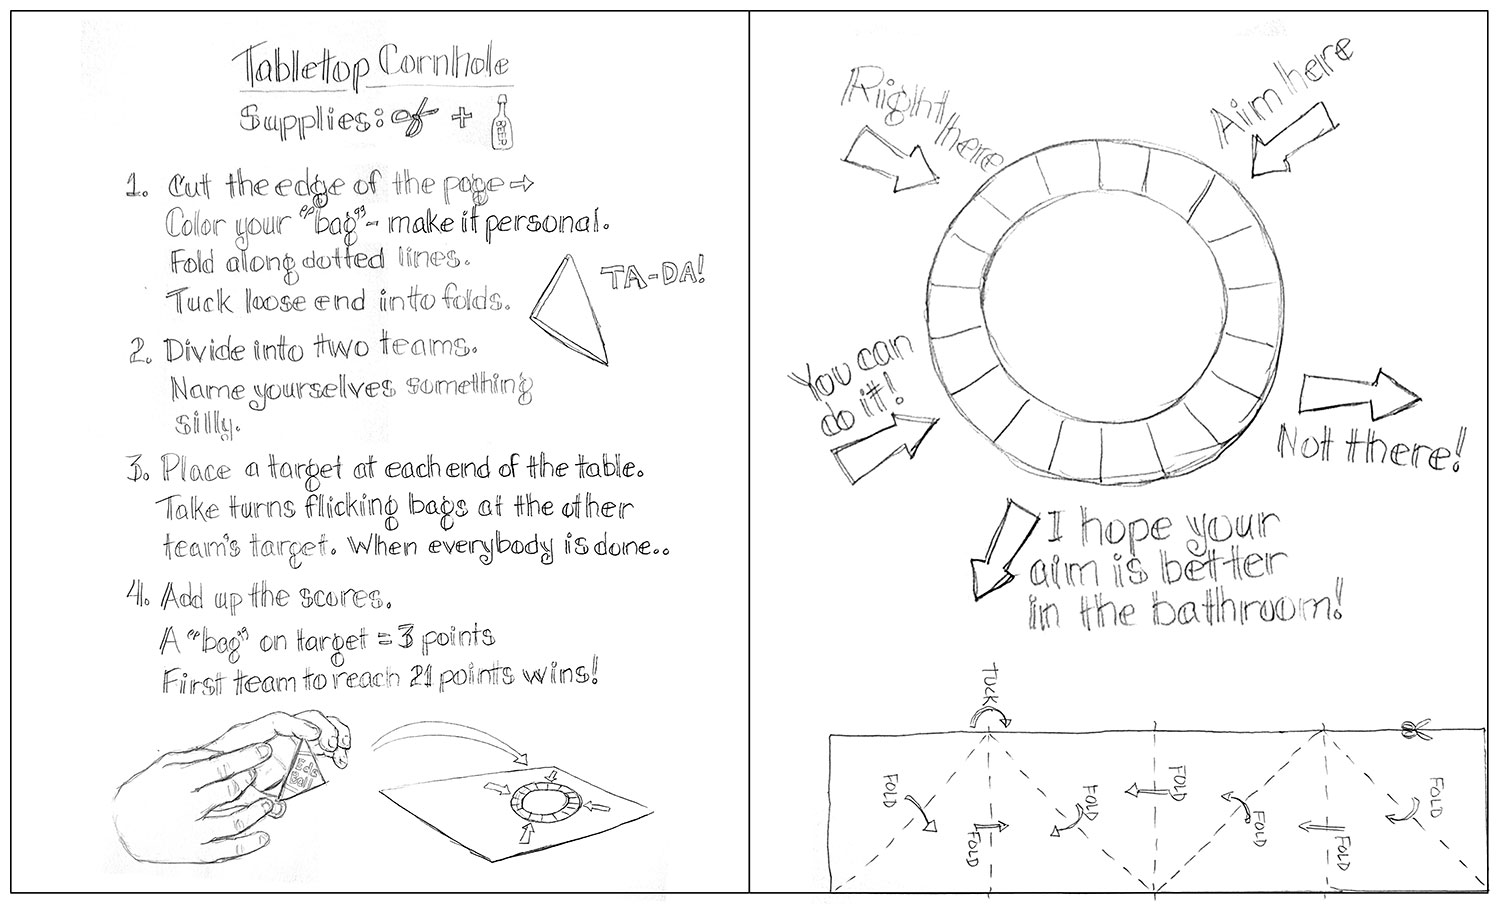 Tabletop Cornhole
Supplies: +
BEER
1. Cut the edge of the page ⇨
Color your "bag" - make it personal.
Fold along dotted lines.
Tuck loose end into folds.
TA-DA!
2. Divide into two teams.
Name yourselves something
silly.
3. Place a target at each end of the table.
Take turns flicking bags at the other
team's target. When everybody is done..
4. Add up the scores.
A "bag" on target = 3 points
First team to reach 21 points wins!
Ball
Right here
Aim here
You can
do it!
Not there!
I hope your
aim is better
in the bathroom!
TUCK
FOLD
FOLD
FOLD
FOLD
FOLD
FOLD
FOLD